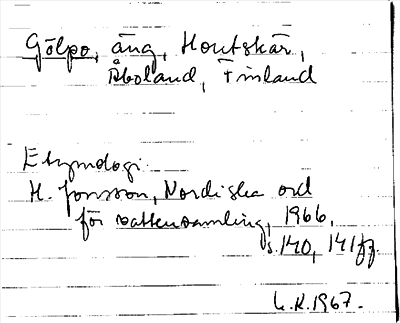 Gölpo, äng, Houtskär,
Åboland, Finland
Etymologi:
H. Jonsson, Nordiska ord
för vattensamling, 1966,
s. 140, 141 ff.
L.R. 1967.